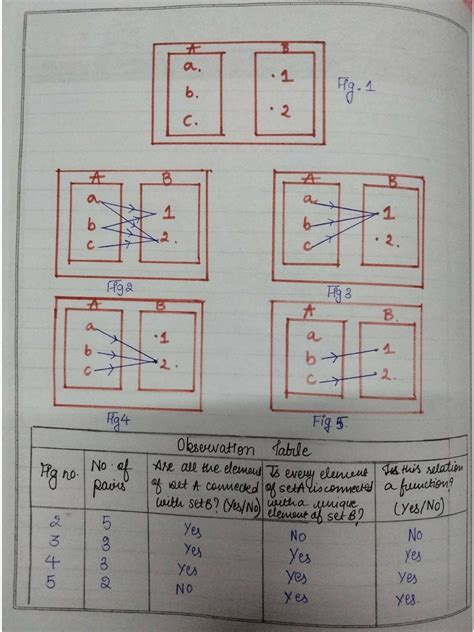 A B
a. · 1
b.
c. · 2
Fig. 1
A B
a
b 1
c 2.
Fig 2
A B
a
b 1
c · 2.
Fig 3
A B
a · 1
b
c 2.
Fig 4
A B.
a
b 1
c 2.
Fig 5.
Observation Table
Fig no. No. of pairs Are all the element of set A connected with set B? (Yes/No) Is every element of set A is connected with a unique element of set B? Is this relation a function? (Yes/No)
2 5 Yes No No
3 3 Yes Yes Yes
4 3 Yes Yes Yes
5 2 No Yes Yes.